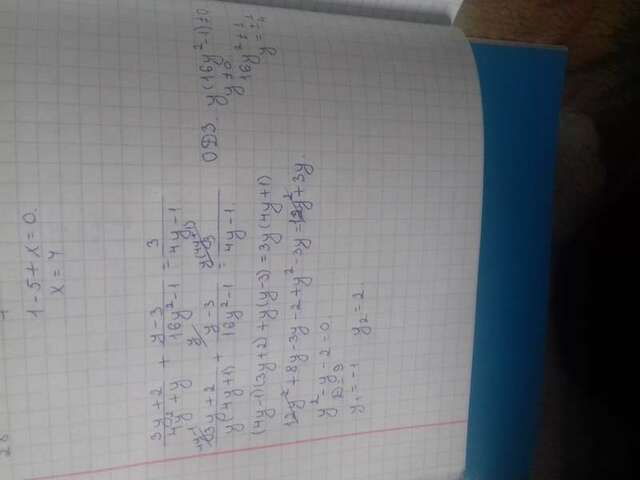 1 - 5 + x = 0.
x = 4
(3y + 2)/(4y² + y) + (y - 3)/(16y² - 1) = 3/(4y - 1)
4y-1/ (3y + 2)/(y(4y + 1)) + y/ (y - 3)/(16y² - 1) = y(4y+1)/ 3/(4y - 1).
ОДЗ. y(16y² - 1) ≠ 0
y ≠ 0
16y² ≠ 1
(4y-1)(3y+2) + y(y-3) = 3y(4y+1)
12y² + 8y - 3y - 2 + y² - 3y = 12y² + 3y.
y² - y - 2 = 0.
D = 9
y₁ = -1 y₂ = 2.